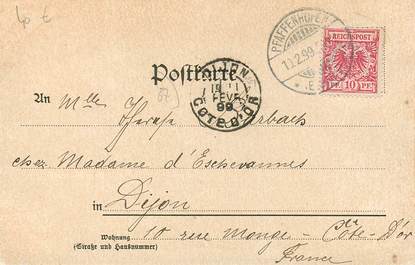 40 €
PFAFFENHOFEN
10.2.99
REICHSPOST
10 PF. 10
DIJON
FEVR
99
COTE D'OR
Postkarte
An Mlle
Thérèse
chez Madame d'Eschevannes
in Dijon
Wohnung
(Straße und Hausnummer)
10 rue Monge - Côte-d'Or
France